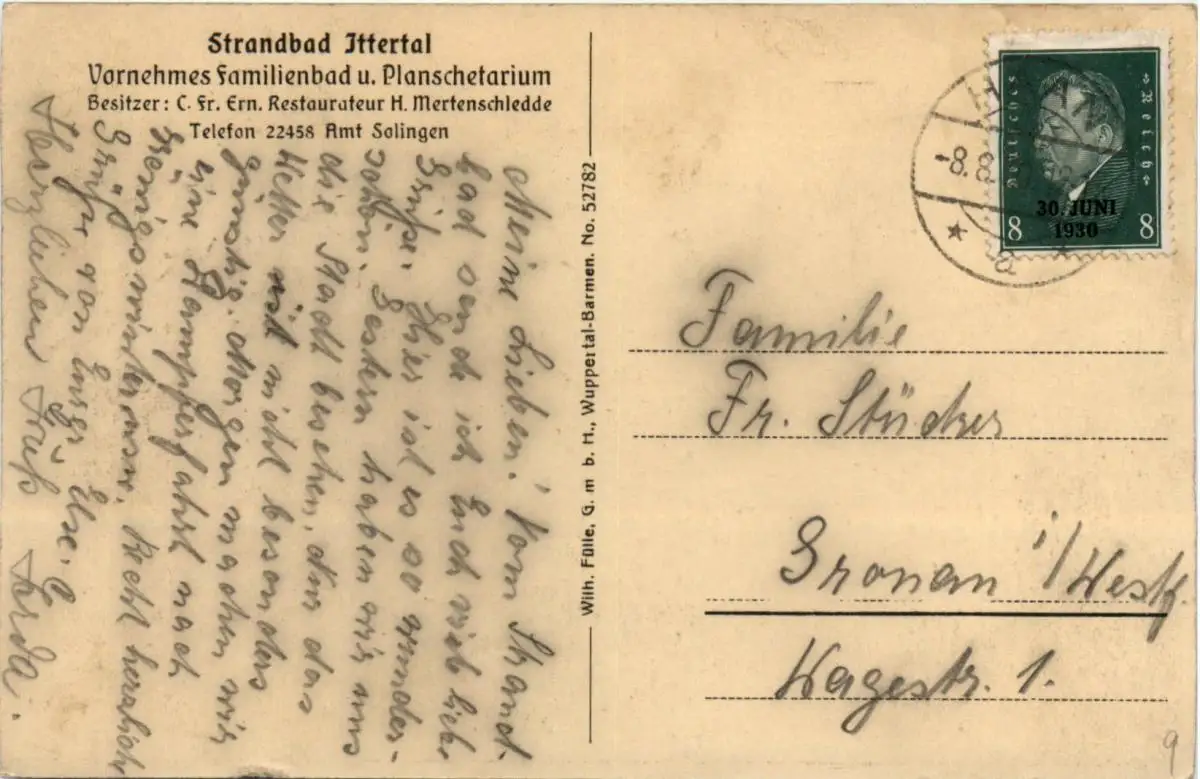 Strandbad Ittertal
Vornehmes Familienbad u. Planschetarium
Besitzer: C. Fr. Ern. Restaurateur H. Mertenschledde
Telefon 22458 Amt Solingen
Meine Lieben! Vom Strand-
bad sende ich Euch viel liebe
Grüße. Hier ist es so wunder-
schön. Gestern haben wir uns
die Stadt besehen. Nur das
Wetter ist nicht besonders
günstig. Morgen machen wir
eine Dampferfahrt nach
Königswinter. Recht herzlich
Grüße von Eurer Else.
Herzlichen Gruß Gerda.
Wilh. Fülle, G. m. b. H., Wuppertal-Barmen. No. 52782
Deutsches Reich
30. JUNI
1930
8 8
HAAN
-8.8.
a
Familie
Fr. Stücker
Gronau i/Westf.
Wagestr. 1.
9